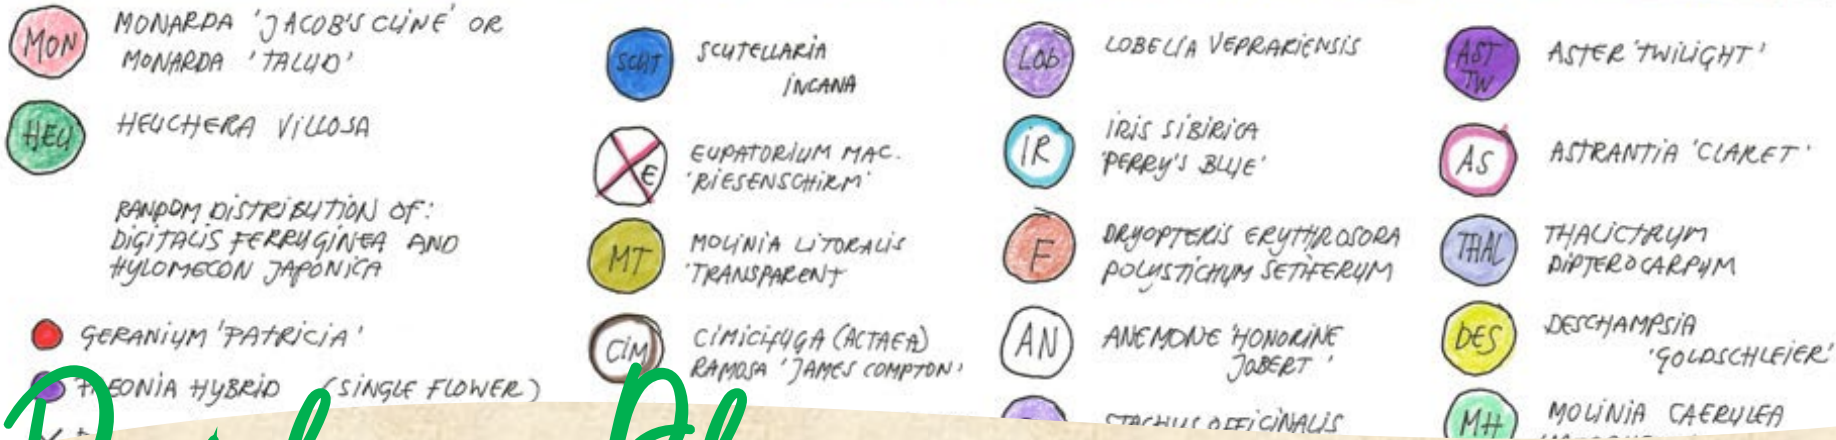 MON
MONARDA 'JACOB'S CLINE' OR
MONARDA 'TALUD'
HEU
HEUCHERA VILLOSA
RANDOM DISTRIBUTION OF:
DIGITALIS FERRUGINEA AND
HYLOMECON JAPONICA
GERANIUM 'PATRICIA'
PAEONIA HYBRID (SINGLE FLOWER)
SCUT
SCUTELLARIA
INCANA
E
EUPATORIUM MAC.
'RIESENSCHIRM'
MT
MOLINIA LITORALIS
'TRANSPARENT
CIM
CIMICIFUGA (ACTAEA)
RAMOSA 'JAMES COMPTON'
LOB
LOBELIA VEPRARIENSIS
IR
IRIS SIBIRICA
'PERRY'S BLUE'
F
DRYOPTERIS ERYTHROSORA
POLYSTICHUM SETIFERUM
AN
ANEMONE 'HONORINE
JOBERT'
STACHUS OFFICINALIS
AST
TW
ASTER 'TWILIGHT'
AS
ASTRANTIA 'CLARET'
THAL
THALICTRUM
DIPTEROCARPUM
DES
DESCHAMPSIA
'GOLDSCHLEIER'
MH
MOLINIA CAERULEA